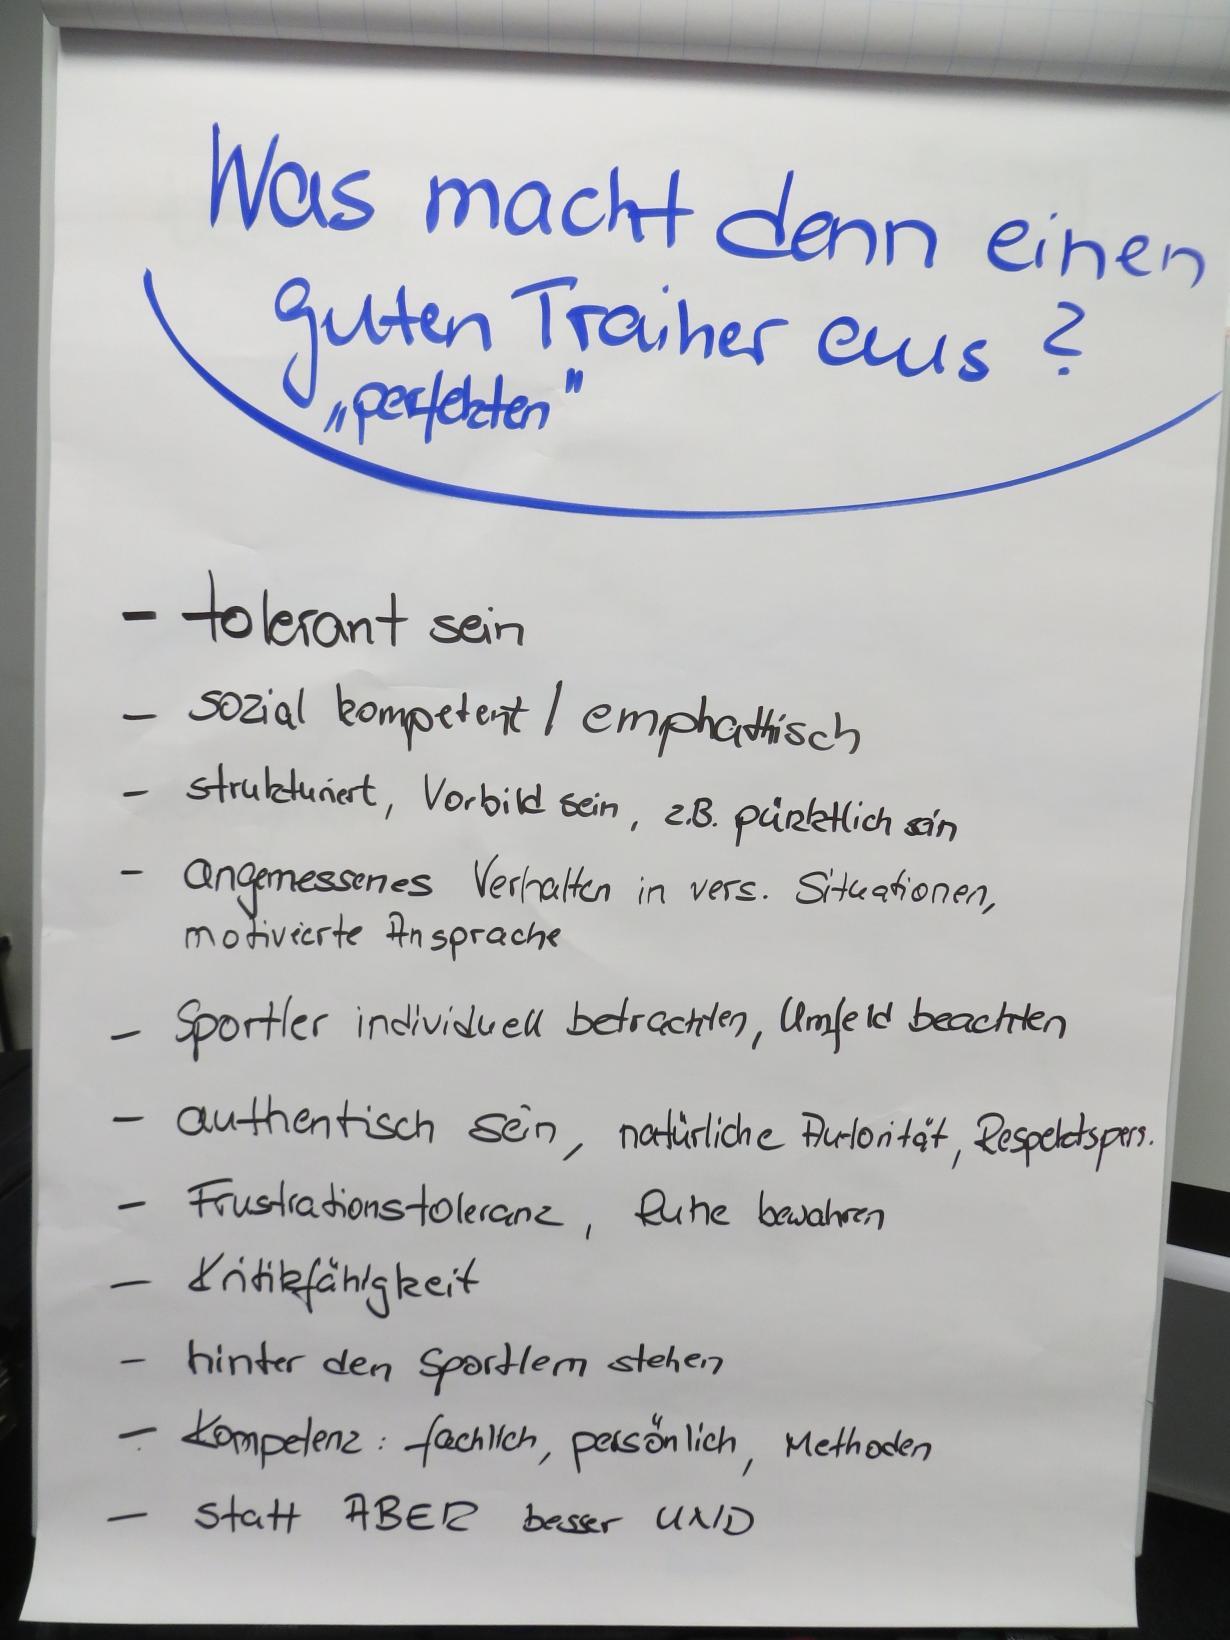 Was macht denn einen
guten Trainer aus ?
„perfekten"
- tolerant sein
- sozial kompetent / emphathisch
- strukturiert, Vorbild sein, z.B. pünktlich sein
- angemessenes Verhalten in vers. Situationen,
motivierte Ansprache
- Sportler individuell betrachten, Umfeld beachten
- authentisch sein, natürliche Autorität, Respektspers.
- Frustrationstoleranz, Ruhe bewahren
- Kritikfähigkeit
- hinter den Sportlern stehen
- Kompetenz: fachlich, persönlich, Methoden
- statt ABER besser UND